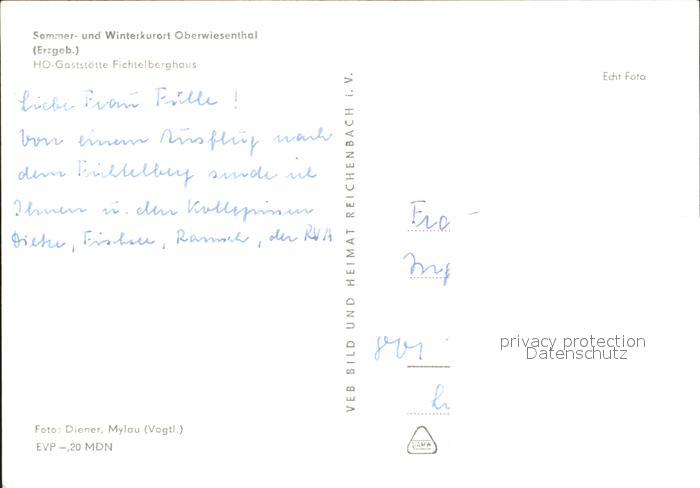 Sommer- und Winterkurort Oberwiesenthal
(Erzgeb.)
HO-Gaststätte Fichtelberghaus
Echt Foto
Liebe Frau Fülle !
Von einem Ausflug nach
dem Fichtelberg sende ich
Ihnen u. den Kolleginnen
Dietze, Fischer, Ramsch, der RVA
VEB BILD UND HEIMAT REICHENBACH i. V.
Fra
Ing
801
privacy protection
Datenschutz
Foto: Diener, Mylau (Vogtl.)
EVP –,20 MDN